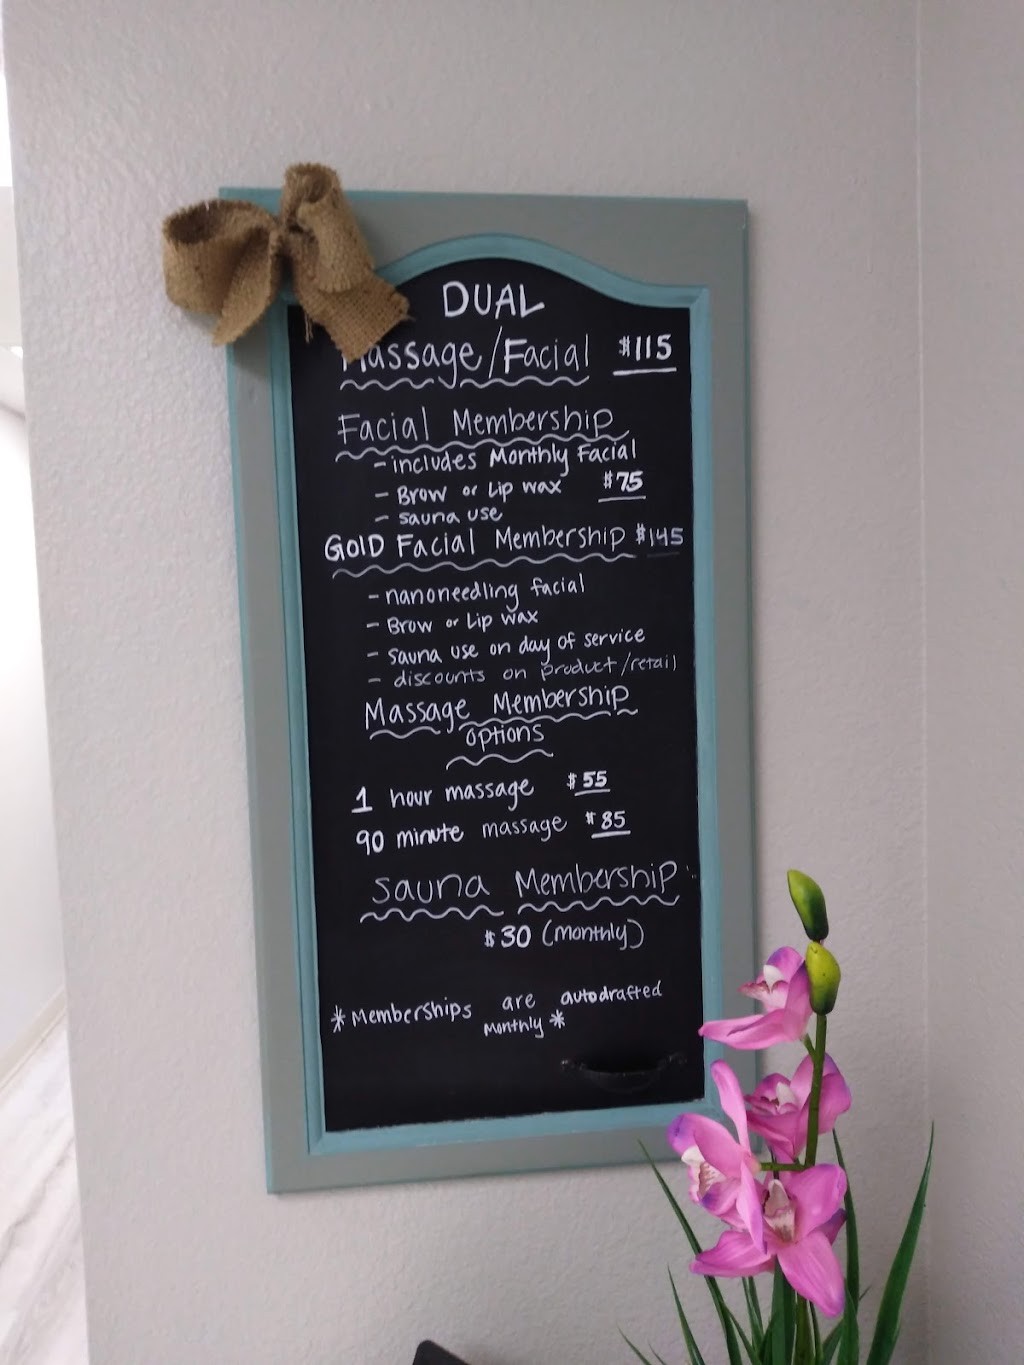 DUAL
Massage/Facial $115
Facial Membership
- includes Monthly Facial
- Brow or Lip wax $75
- sauna use
GOlD Facial Membership $145
- nanoneedling facial
- Brow or Lip wax
- sauna use on day of service
- discounts on product/retail
Massage Membership
options
1 hour massage $55
90 minute massage $85
sauna Membership
$30 (monthly)
*Memberships are autodrafted
Monthly*